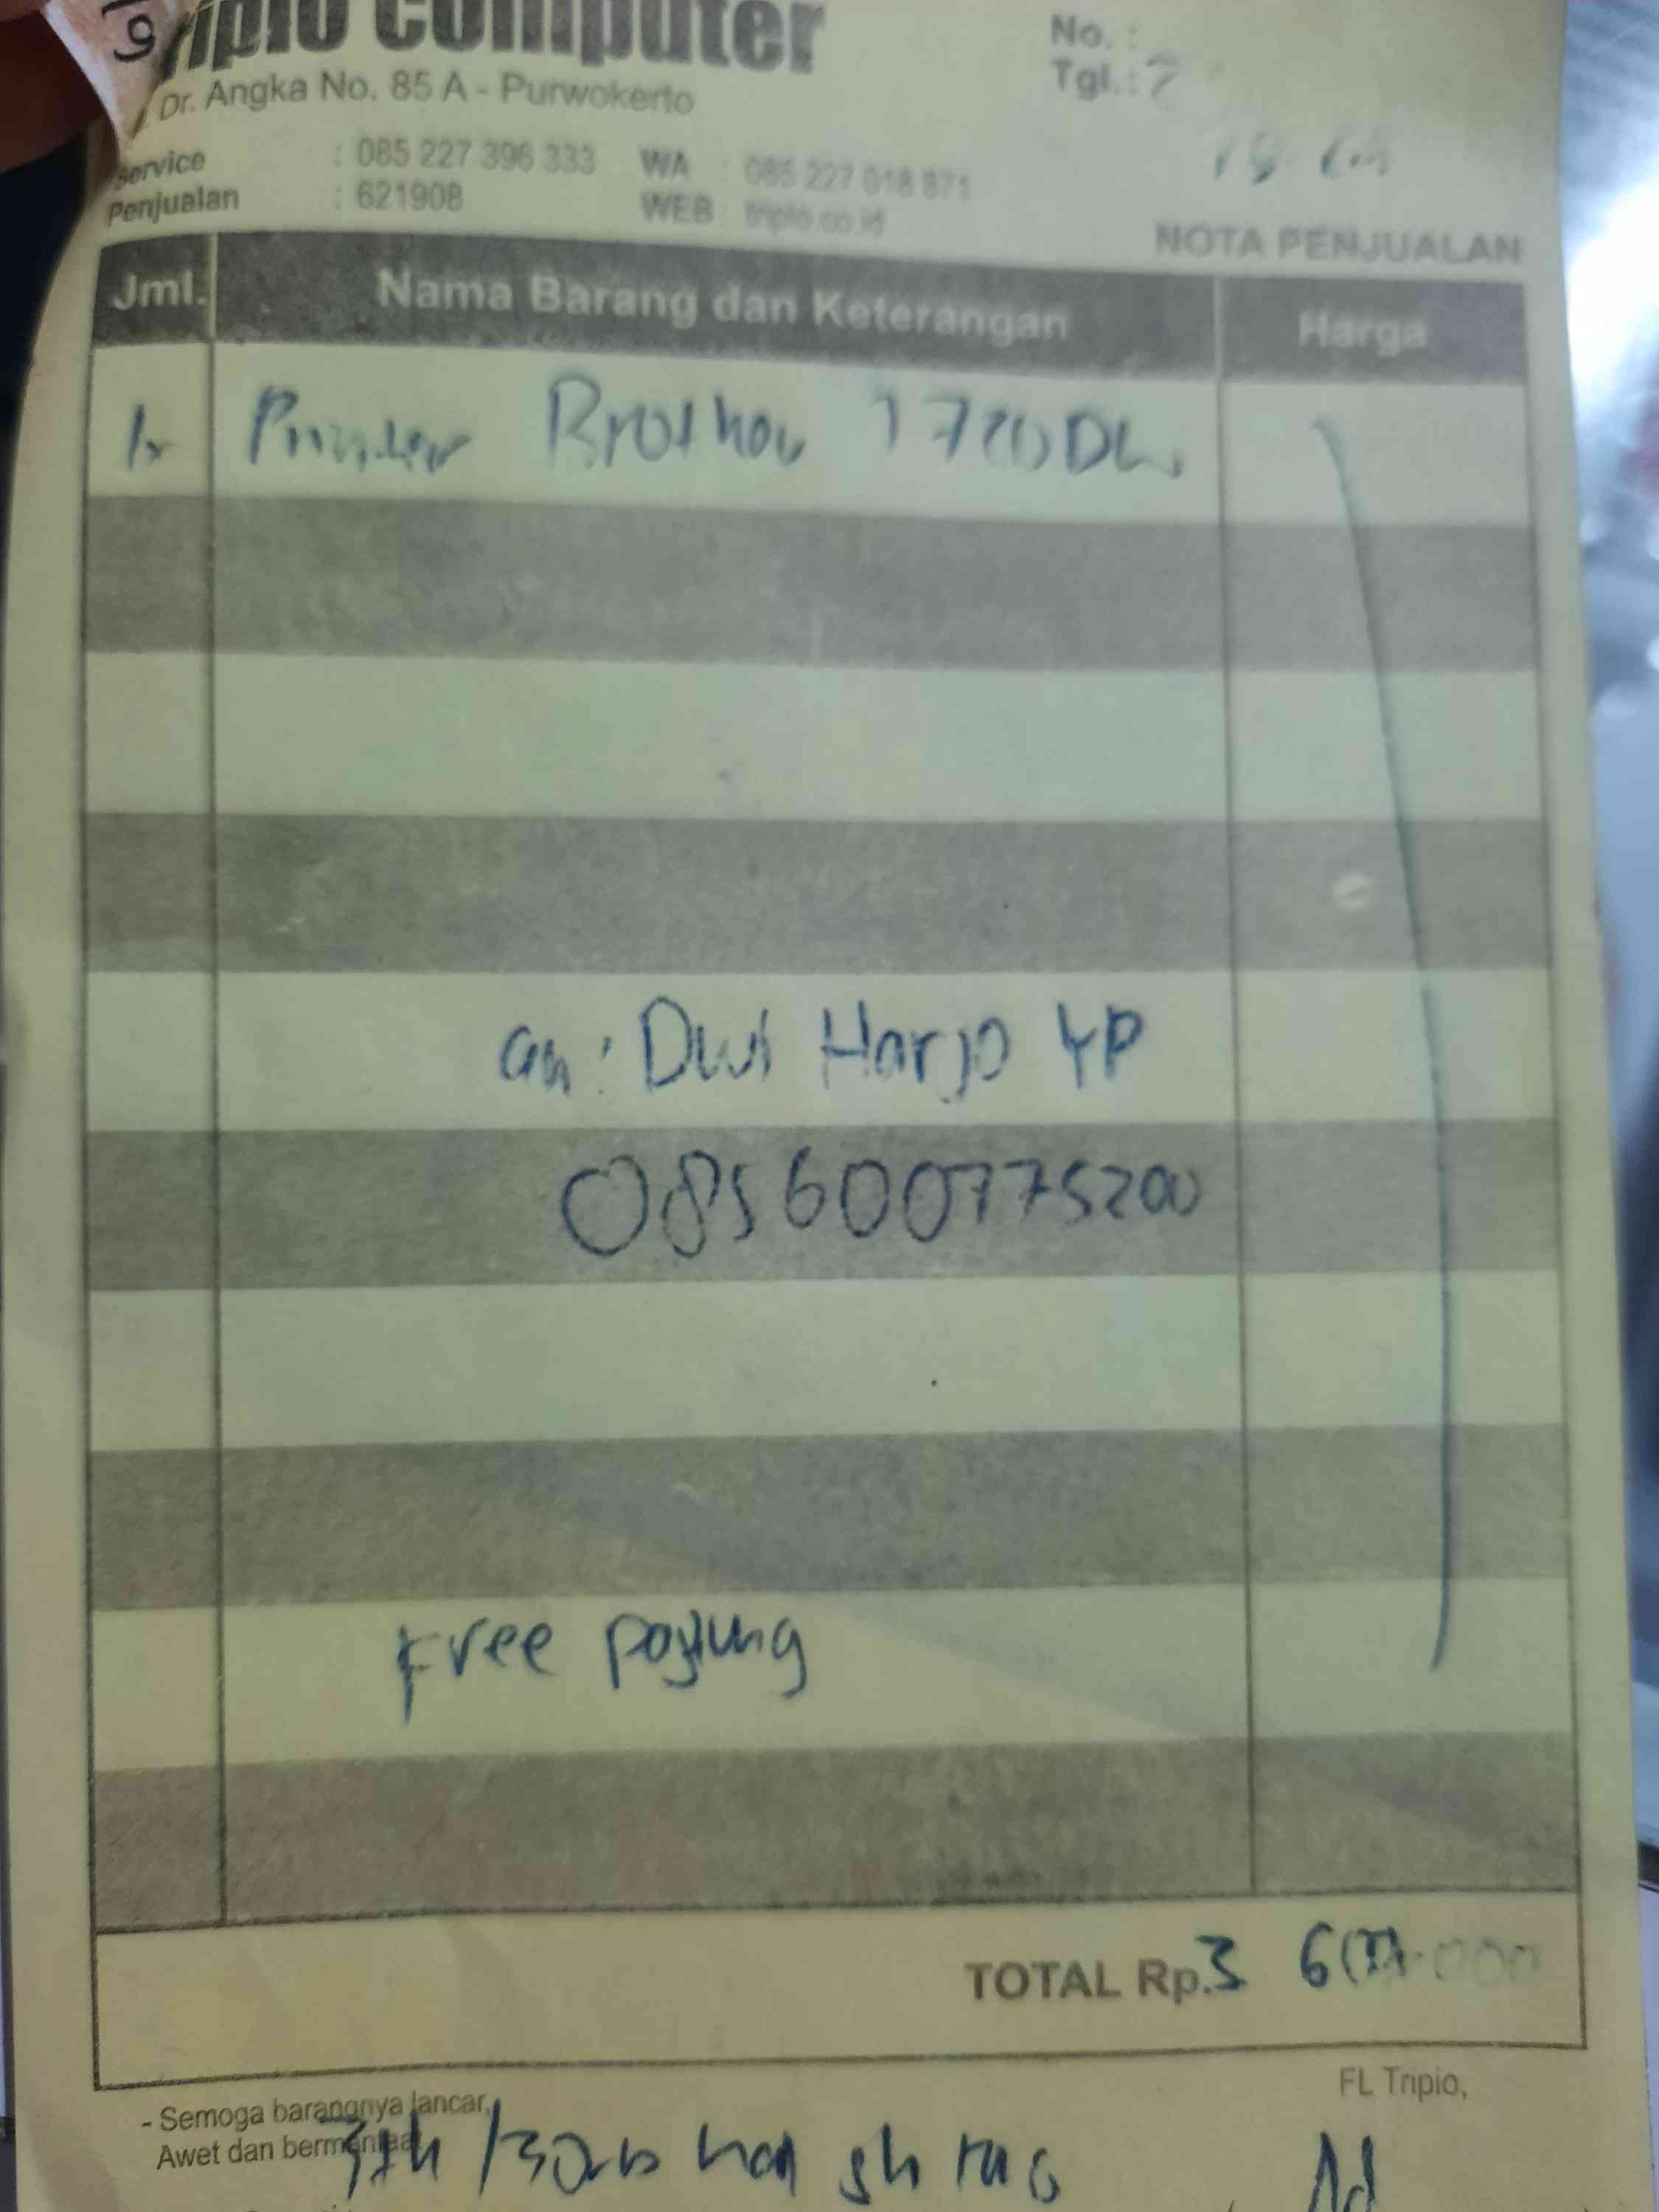 Tripio Computer
Dr. Angka No. 85 A - Purwokerto
No. :
Tgl. :
Service : 085 227 396 333 WA : 085 227 018 871
Penjualan : 621908 WEB : tripio.co.id
NOTA PENJUALAN
Jml. Nama Barang dan Keterangan Harga
1x Printer Brother
an: Dwi Harjo YP
085600775200
Free payung
TOTAL Rp. 3 600.000
FL Tripio,
- Semoga barangnya lancar,
Awet dan bermanfaat